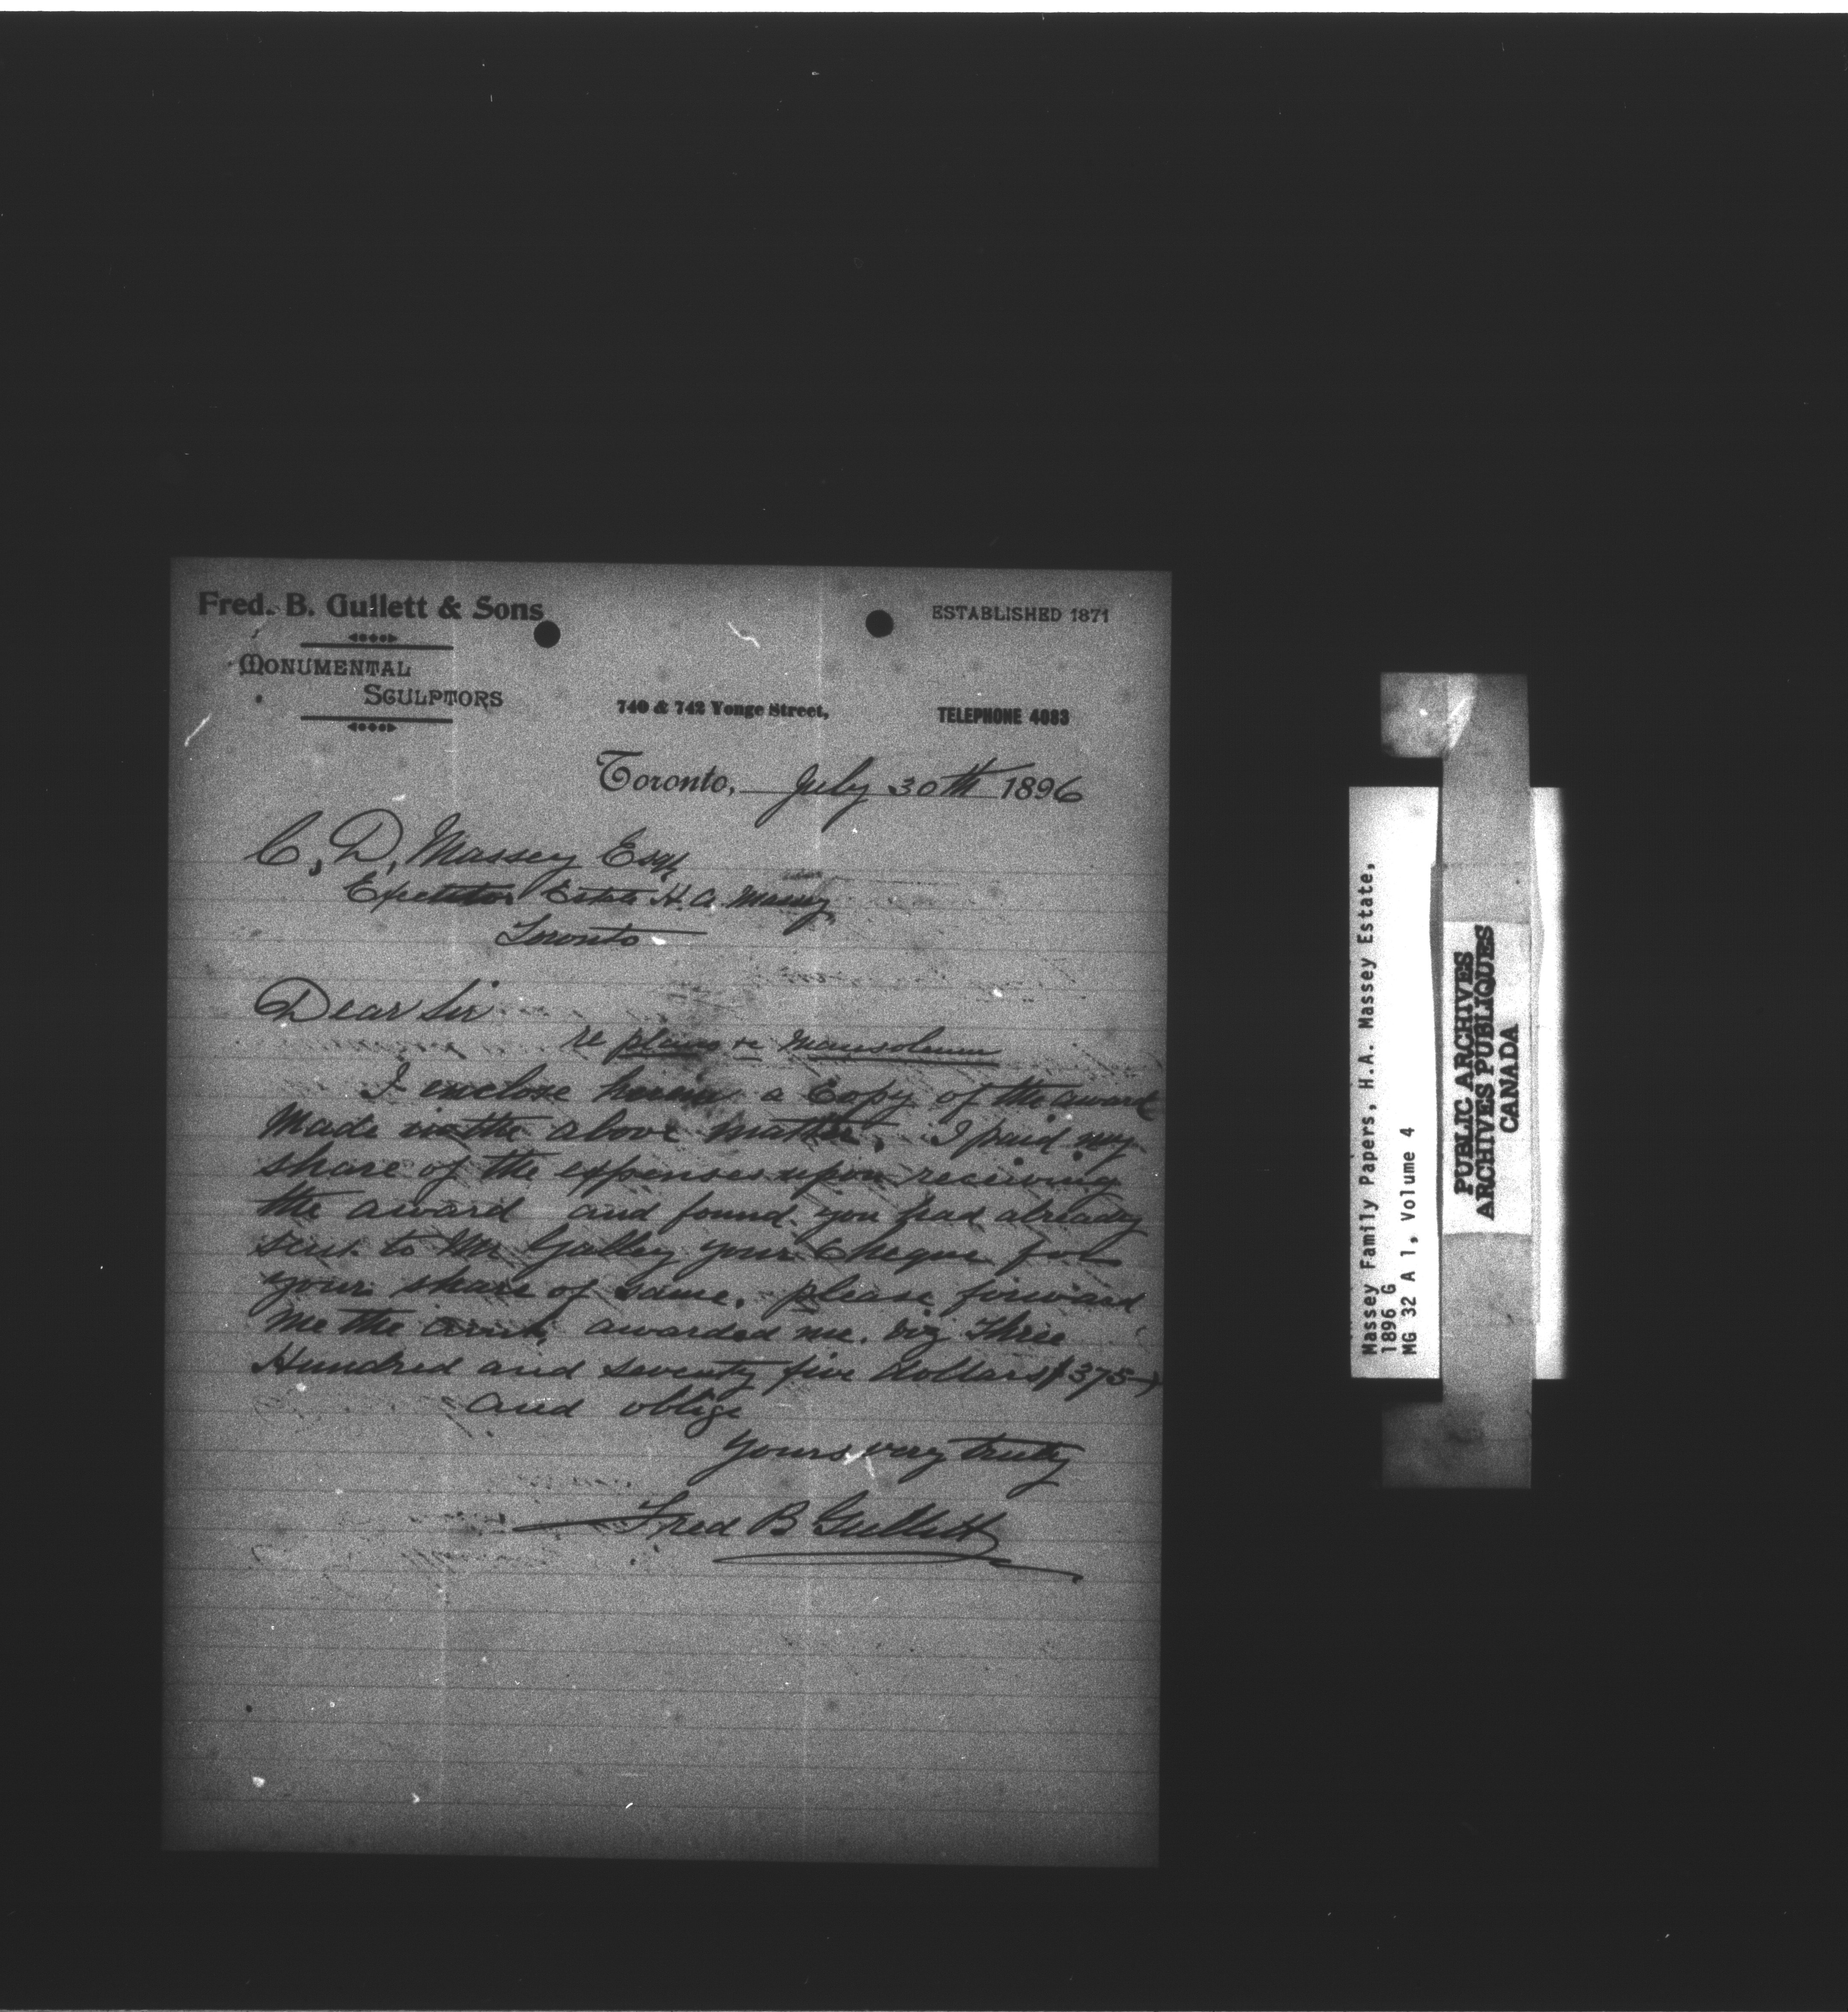 Fred. B. Gullett & Sons
ESTABLISHED 1871
MONUMENTAL
SCULPTORS
740 & 742 Yonge Street,
TELEPHONE 4083
Toronto, July 30th 1896
C. D. Massey Esq
Executor Estate H. A. Massey,
Toronto
Dear Sir
re plans re Mausoleum
I enclose herein a Copy of the award
Made in the above matter, I paid my
share of the expenses upon receiving
the award and found you had already
sent to Mr Galley your Cheque for
your share of same. please forward
me the amt. awarded me. viz Three
Hundred and seventy five Dollars $375
and oblige
Yours very truly
Fred B Gullett
Massey Family Papers, H.A. Massey Estate,
1896 G
MG 32 A 1, Volume 4
PUBLIC ARCHIVES
ARCHIVES PUBLIQUES
CANADA